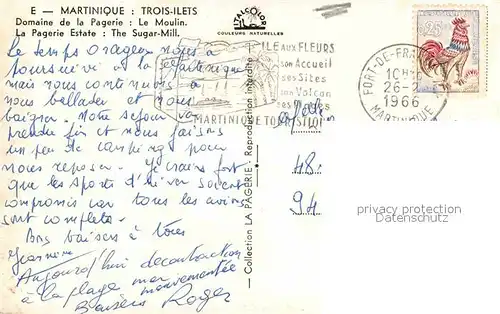 E — MARTINIQUE : TROIS-ILETS
Domaine de la Pagerie : Le Moulin.
La Pagerie Estate : The Sugar-Mill.
ITALCOLOR
COULEURS NATURELLES
Le temps orageux nous a
poursuivi
mais nous continuons à
nous ballader et nous
baigner. Notre séjour va
prendre fin et nous faisons
un peu de camping pour
nous reposer. Je crains fort
que les sports d'hiver soient
compromis car tous les avions
sont complets.
Bons baisers à tous
Jeannine
Aujourd'hui décontraction
à la plage mer mouvementée
Baisers Roger
Collection LA PAGERIE - Reproduction interdite
ILE AUX FLEURS
son Accueil
ses Sites
son Volcan
ses Plages
MARTINIQUE
FORT-DE-FRANCE
26-2
1966
MARTINIQUE
0,25
48.
94
copyright protected